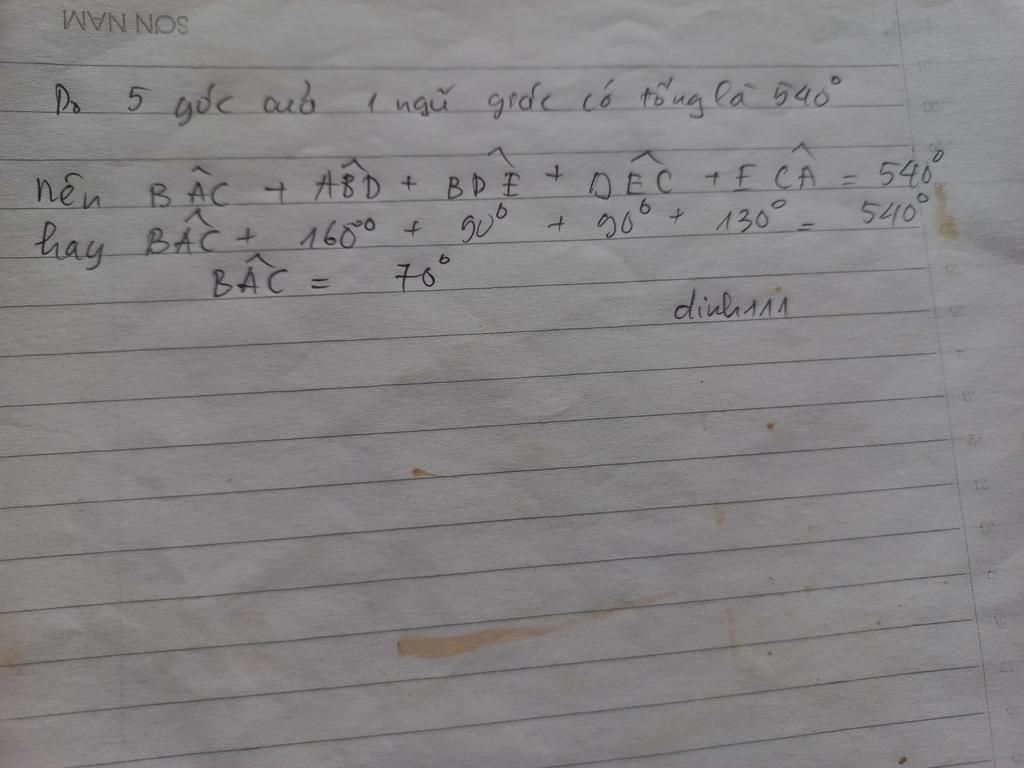 SƠN NAM
Do 5 góc của 1 ngũ giác có tổng là 540°
nên BÂC + AB̂D + BDÊ + DÊC + EĈA = 540°
hay BÂC + 160°° + 90° + 90° + 130° = 540°
BÂC = 70°
dinh111